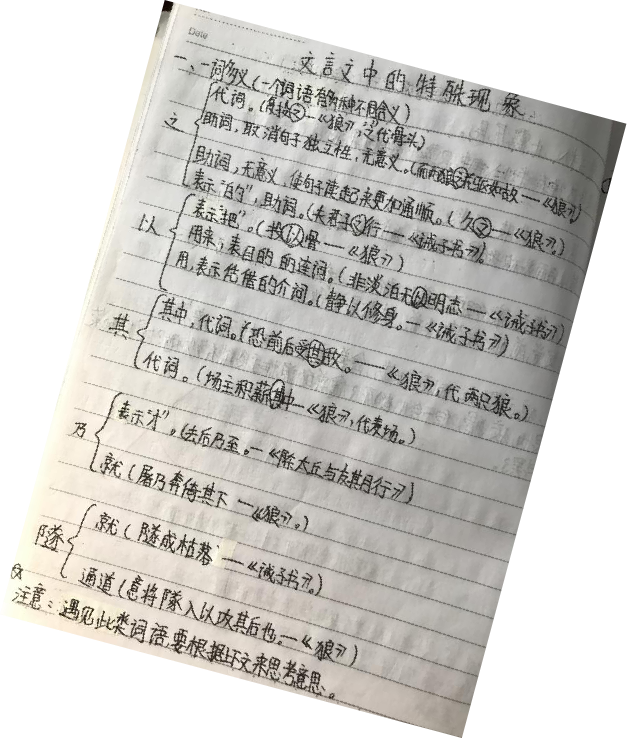 Date
文言文中的特殊现象
一、一词多义(一个词语有多种不同含义)
之
代词。(复投之—《狼》,之代骨头)
助词,取消句子独立性,无意义。(而两狼之并驱如故—《狼》)
助词,无意义,使句子读起来更加通顺。(久之—《狼》)
表示"的",助词。(夫君子之行—《诫子书》)
以
表示"把"。(投以骨—《狼》)
用来,表目的的连词。(非淡泊无以明志—《诫子书》)
用,表示凭借的介词。(静以修身。—《诫子书》)
其
其中,代词。(恐前后受其敌。—《狼》,代两只狼。)
代词。(场主积薪其中—《狼》,代麦场。)
乃
表示"才"。(去后乃至。—《陈太丘与友期行》)
就(屠乃奔倚其下—《狼》。)
隧
就(隧成枯落—《诫子书》。)
通道(意将隧入以攻其后也。—《狼》)
注意:遇见此类词语要根据上下文来思考意思。